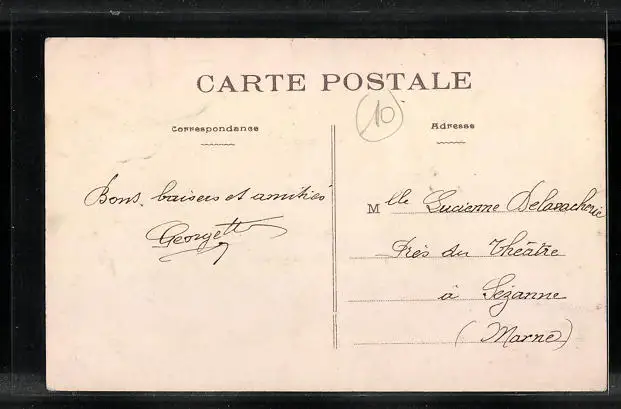 CARTE POSTALE
10
Correspondance
Adresse
Bons baisers et amitiés
Georgette
Mlle Lucienne Delavacherie
Près du Théâtre
à Sézanne
(Marne)